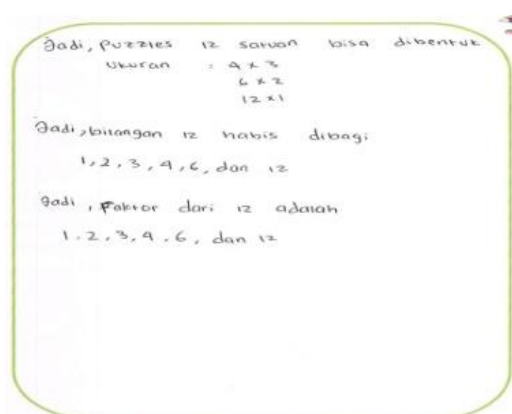 Jadi, Puzzles 12 satuan bisa dibentuk
Ukuran : 4 x 3
6 x 2
12 x 1
Jadi, bilangan 12 habis dibagi
1, 2, 3, 4, 6, dan 12
Jadi, Faktor dari 12 adalah
1, 2, 3, 4, 6, dan 12